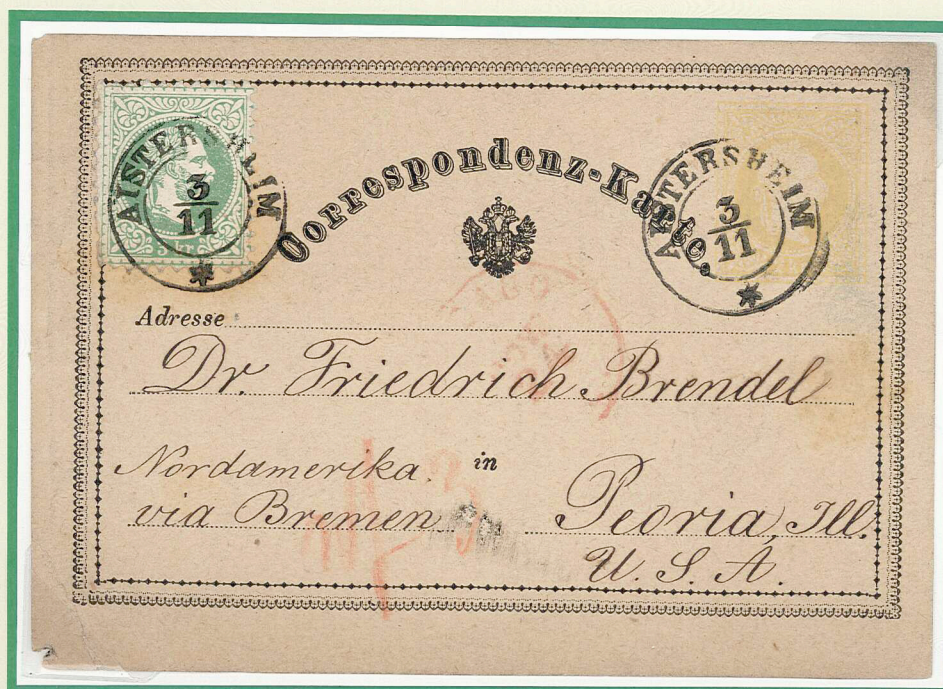 AISTERSHEIM
3
11
Correspondenz-Karte.
AISTERSHEIM
3
11
Adresse
Dr. Friedrich Brendel
Nordamerika in
via Bremen Peoria, Ill.
U. S. A.